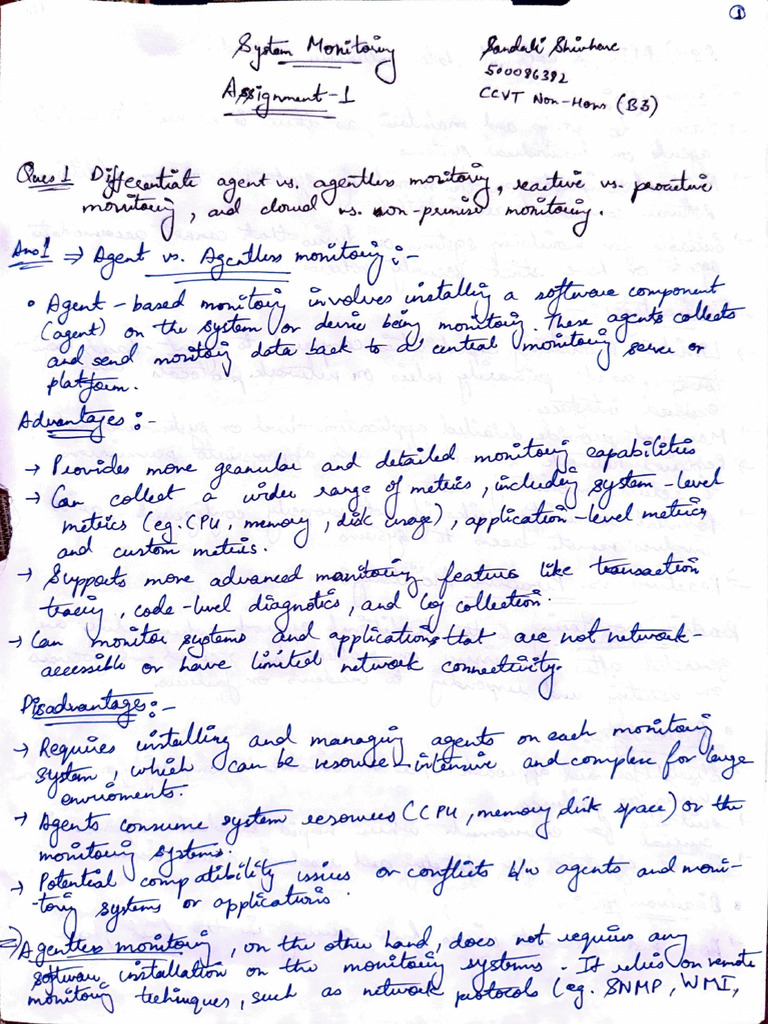 1
System Monitoring
Assignment-1
Sandali Shivhare
500096392
CCVT Non-Hons (B3)
Ques 1 Differentiate agent vs. agentless monitoring, reactive vs. proactive
monitoring, and cloud vs. on-premise monitoring.
Ans 1 ⇒ Agent vs. Agentless monitoring:-
• Agent-based monitoring involves installing a software component
(agent) on the system or device being monitoring. These agents collects
and send monitoring data back to a central monitoring server or
platform.
Advantages:-
→ Provides more granular and detailed monitoring capabilities
→ Can collect a wider range of metrics, including system-level
metrics (eg. CPU, memory, disk usage), application-level metrics
and custom metrics.
→ Supports more advanced monitoring features like transaction
tracing, code-level diagnostics, and log collection.
→ Can monitor systems and applications that are not network-
accessible or have limited network connectivity.
Disadvantages:-
→ Requires installing and managing agents on each monitoring
system, which can be resource-intensive and complex for large
enviroments.
→ Agents consume system resources (CPU, memory, disk space) or the
monitoring systems.
→ Potential compatibility issues or conflicts b/w agents and moni-
-toring systems or applications.
⇒ Agentless monitoring, on the other hand, does not requires any
software installation on the monitoring systems. It relies on remote
monitoring techniques, such as network protocols (eg. SNMP, WMI,